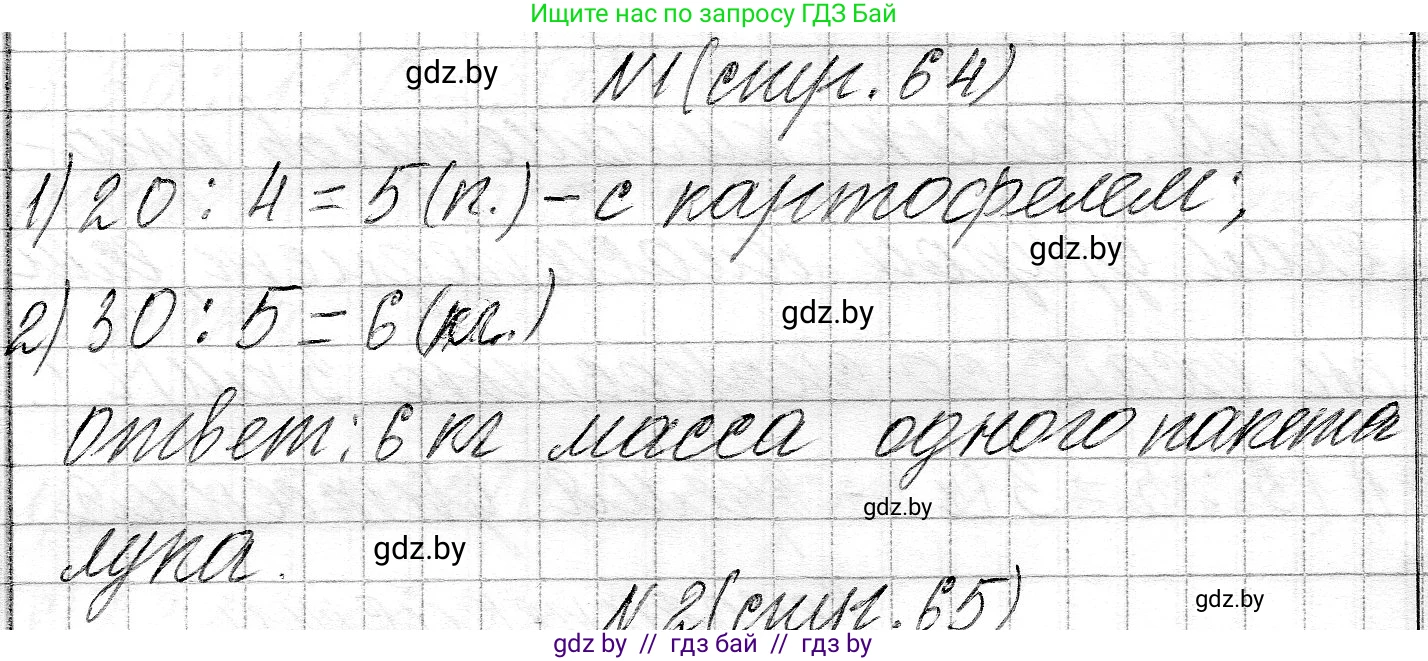 Ищите нас по запросу ГДЗ Бай
gdz.by
№1(стр. 64)
1) 20 : 4 = 5 (п.) - с картофелем;
gdz.by
2) 30 : 5 = 6 (кг.)
gdz.by
ответ: 6 кг масса одного пакета
gdz.by
лука.
gdz.by
№2(стр. 65)
gdz.by
gdz.by // гдз бай // гдз by